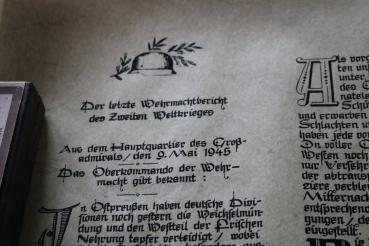 Der letzte Wehrmachtbericht
des Zweiten Weltkrieges
Aus dem Hauptquartier des Groß-
admirals / den 9. Mai 1945
Das Oberkommando der Wehr-
macht gibt bekannt :
In Ostpreußen haben deutsche Divi-
sionen noch gestern die Weichselmün-
dung und den Westteil der Frischen
Nehrung tapfer verteidigt / wobei
Als vorg
ten un
unter
des C
natele
Schü
und erwarben
Schlachten u
haben jede vo
In voller C
Westen noch
nur Verfeh
der abtrans
ziere verblei
Mitternach
entsprechend
gungen / de
eingestellt.